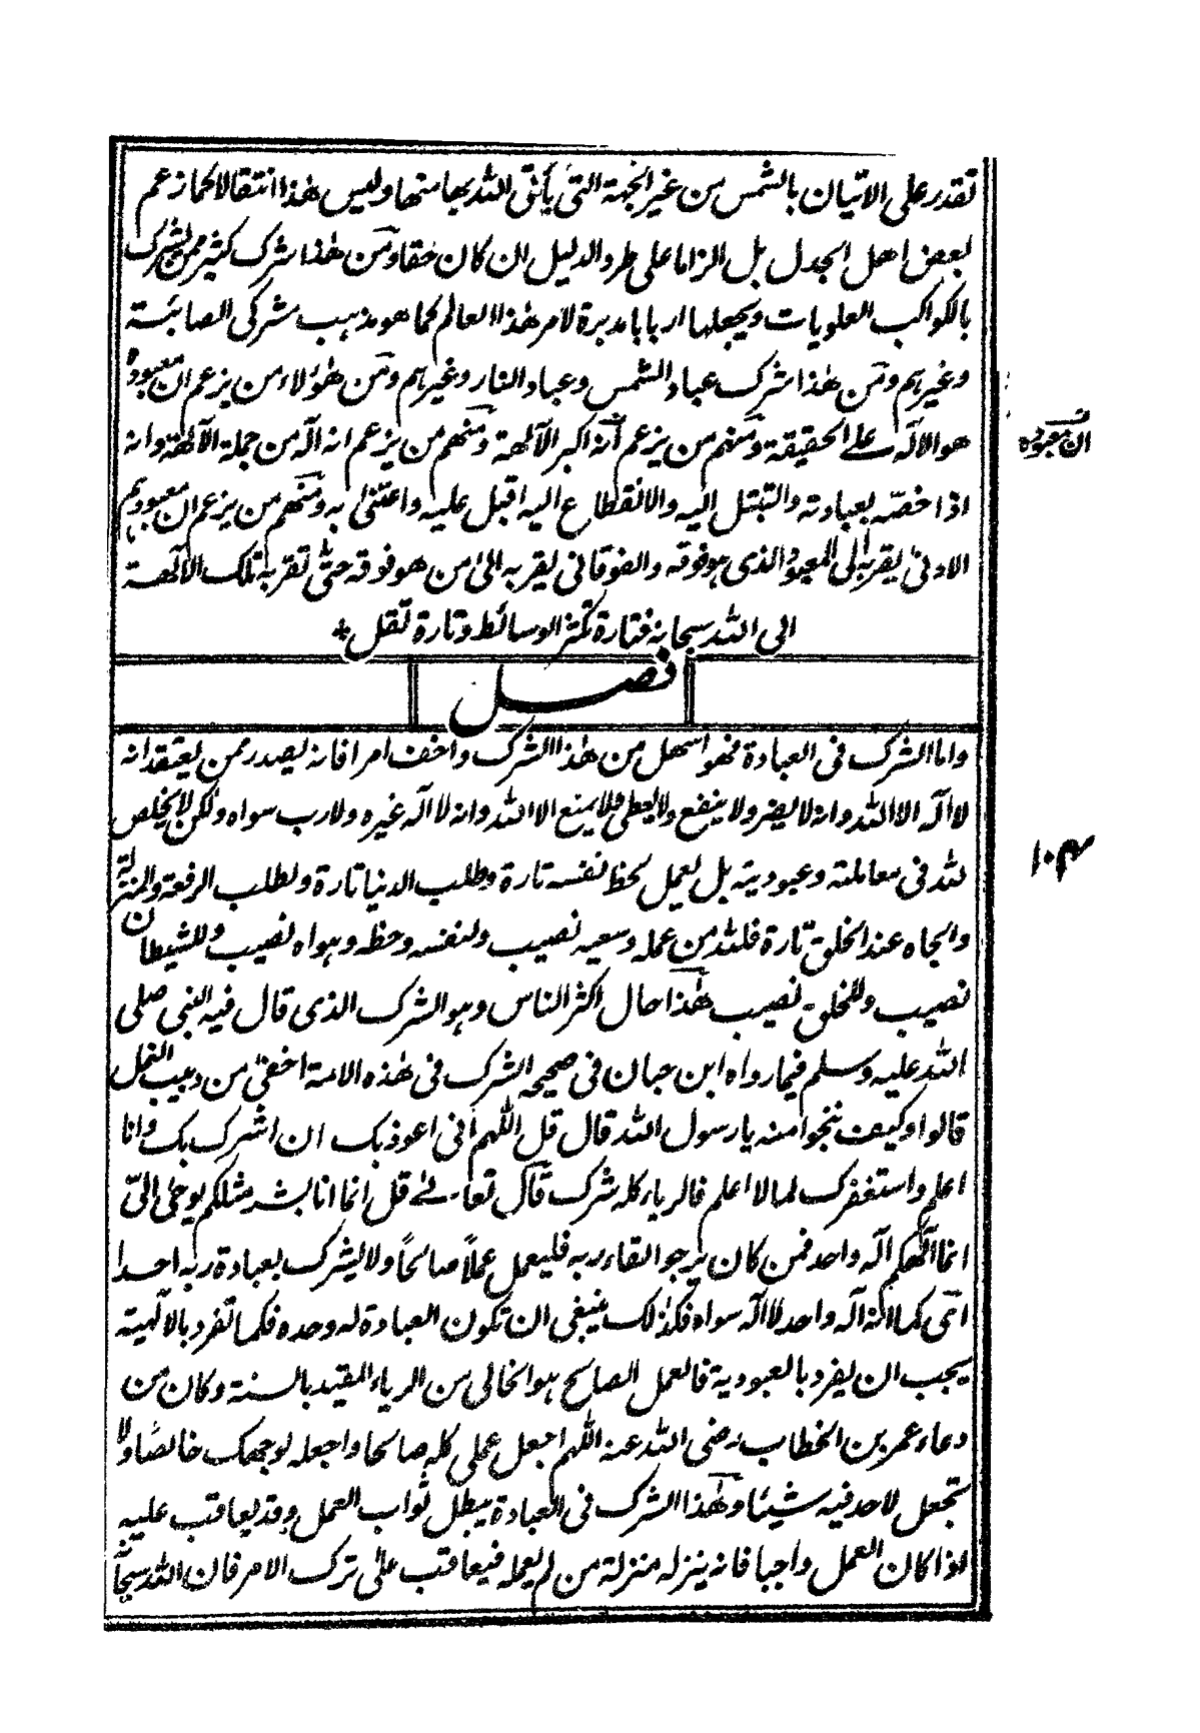 تقدر على الاتيان بالشمس من غير الجهة التى يأتى الله بها منها وليس هذا انتقالا كما زعم
بعض اهل الجدل بل الزاما على طرد الدليل ان كان حقا ومن هذا شرك كثير ممن يشرك
بالكواكب العلويات ويجعلها اربابا مدبرة لامر هذا العالم كما هو مذهب مشركى الصابئة
وغيرهم ومن هذا شرك عباد الشمس وعباد النار وغيرهم ومن هؤلاء من يزعم ان معبوده
هو الاله على الحقيقة ومنهم من يزعم انه اكبر الآلهة ومنهم من يزعم انه اله من جملة الآلهة وانه
ان معبوده
اذا خصه بعبادته والتبتل اليه والانقطاع اليه اقبل عليه واعتنى به ومنهم من يزعم ان معبودهم
الادنى يقربه الى المعبود الذى هو فوقه والفوقانى يقربه الى من هو فوقه حتى تقربه تلك الآلهة
الى الله سبحانه فتارة تكثر الوسائط وتارة تقل
فصل
واما الشرك فى العبادة فهو اسهل من هذا الشرك واخف امرا فانه يصدر ممن يعتقد انه
لا اله الا الله وانه لا يضر ولا ينفع ولا يعطى ولا يمنع الا الله وانه لا اله غيره ولا رب سواه ولكن لا يخلص
لله فى معاملته وعبوديته بل يعمل لحظ نفسه تارة وطلب الدنيا تارة ولطلب الرفعة والمنزلة
والجاه عند الخلق تارة فلله من عمله وسعيه نصيب ولنفسه وحظه وهواه نصيب وللشيطان
نصيب وللخلق نصيب هذا حال اكثر الناس وهو الشرك الذى قال فيه النبى صلى
الله عليه وسلم فيما رواه ابن حبان فى صحيحه الشرك فى هذه الامة اخفى من دبيب النمل
قالوا وكيف ننجوا منه يا رسول الله قال قل اللهم انى اعوذ بك ان اشرك بك وانا
اعلم واستغفرك لما لا اعلم فالرياء كله شرك قال تعالى قل انما انا بشر مثلكم يوحى الىّ
انما الهكم اله واحد فمن كان يرجوا لقاء ربه فليعمل عملاً صالحاً ولا يشرك بعبادة ربه احدا
اى كما انه اله واحد لا اله سواه فكذلك ينبغى ان تكون العبادة له وحده فكما تفرد بالالهية
يجب ان يفرد بالعبودية فالعمل الصالح هو الخالى من الرياء المقيد بالسنة وكان من
دعاء عمر بن الخطاب رضى الله عنه اللهم اجعل عملى كله صالحا واجعله لوجهك خالصا ولا
تجعل لاحد فيه شيئا وهذا الشرك فى العبادة يبطل ثواب العمل وقد يعاقب عليه
اذا كان العمل واجبا فانه ينزله منزلة من لم يعمله فيعاقب على ترك الامر فان الله سبحانه